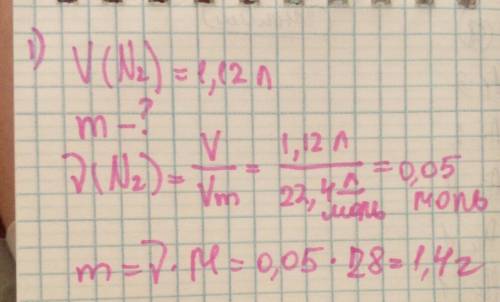 1) V(N₂) = 1,12 л
m - ?
ν(N₂) = V/Vm = 1,12 л / 22,4 л/моль = 0,05 моль
m = ν · M = 0,05 · 28 = 1,4 г